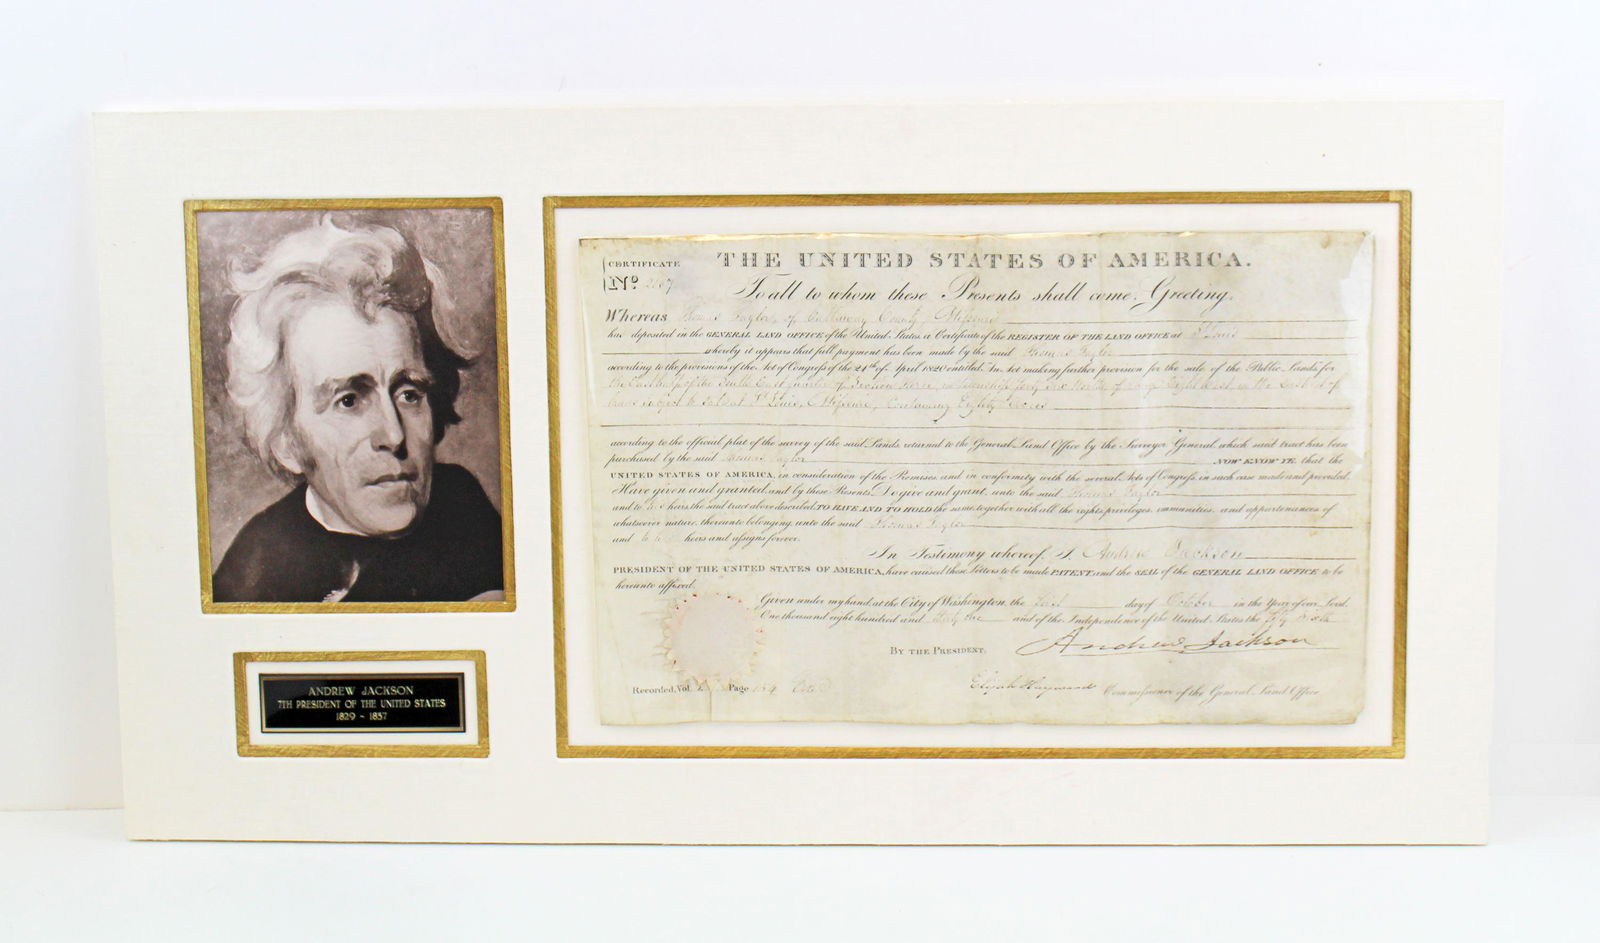 ANDREW JACKSON
7TH PRESIDENT OF THE UNITED STATES
1829 ~ 1837
CERTIFICATE
No
THE UNITED STATES OF AMERICA.
To all to whom these Presents shall come, Greeting.
Whereas Thomas Taylor, of Callaway County, Missouri
has deposited in the GENERAL LAND OFFICE of the United States, a Certificate of the REGISTER OF THE LAND OFFICE at St Louis
whereby it appears that full payment has been made by the said Thomas Taylor
according to the provisions of the Act of Congress of the 24th of April 1820 entitled "An Act making further provision for the sale of the Public Lands," for
the East half of the South East quarter of Section in Township Forty Six North, of range Eight West, in the District of
lands subject to sale at St Louis, Missouri, Containing Eighty Acres
according to the official plat of the survey of the said Lands, returned to the General Land Office by the Surveyor General, which said tract has been
purchased by the said Thomas Taylor NOW KNOW YE, that the
UNITED STATES OF AMERICA, in consideration of the Premises, and in conformity with the several Acts of Congress, in such case made and provided,
Have given and granted, and by these Presents, Do give and grant, unto the said Thomas Taylor
and to his heirs, the said tract above described, TO HAVE AND TO HOLD the same, together with all the rights, privileges, immunities, and appurtenances of
whatsoever nature, thereunto belonging, unto the said Thomas Taylor
and to his heirs and assigns forever.
In Testimony whereof, I, Andrew Jackson
PRESIDENT OF THE UNITED STATES OF AMERICA, have caused these Letters to be made PATENT, and the SEAL of the GENERAL LAND OFFICE to be
hereunto affixed.
Given under my hand, at the City of Washington, the first day of October in the Year of our Lord,
One thousand eight hundred and thirty one and of the Independence of the United States the fifty sixth
Andrew Jackson
BY THE PRESIDENT,
Elijah Hayward Commissioner of the General Land Office
Recorded, Vol. Page